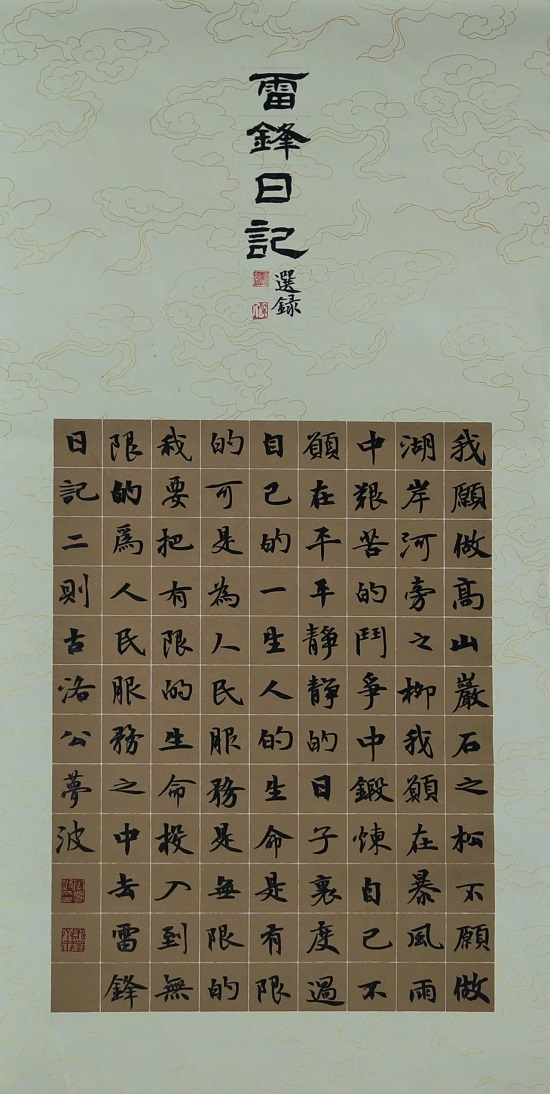 雷鋒日記
選録
我願做高山巖石之松不願做
湖岸河旁之柳我願在暴風雨
中艱苦的鬥爭中鍛煉自己不
願在平平靜靜的日子裏度過
自己的一生人的生命是有限
的可是為人民服務是無限的
我要把有限的生命投入到無
限的爲人民服務之中去雷鋒
日記二則古洛公夢波